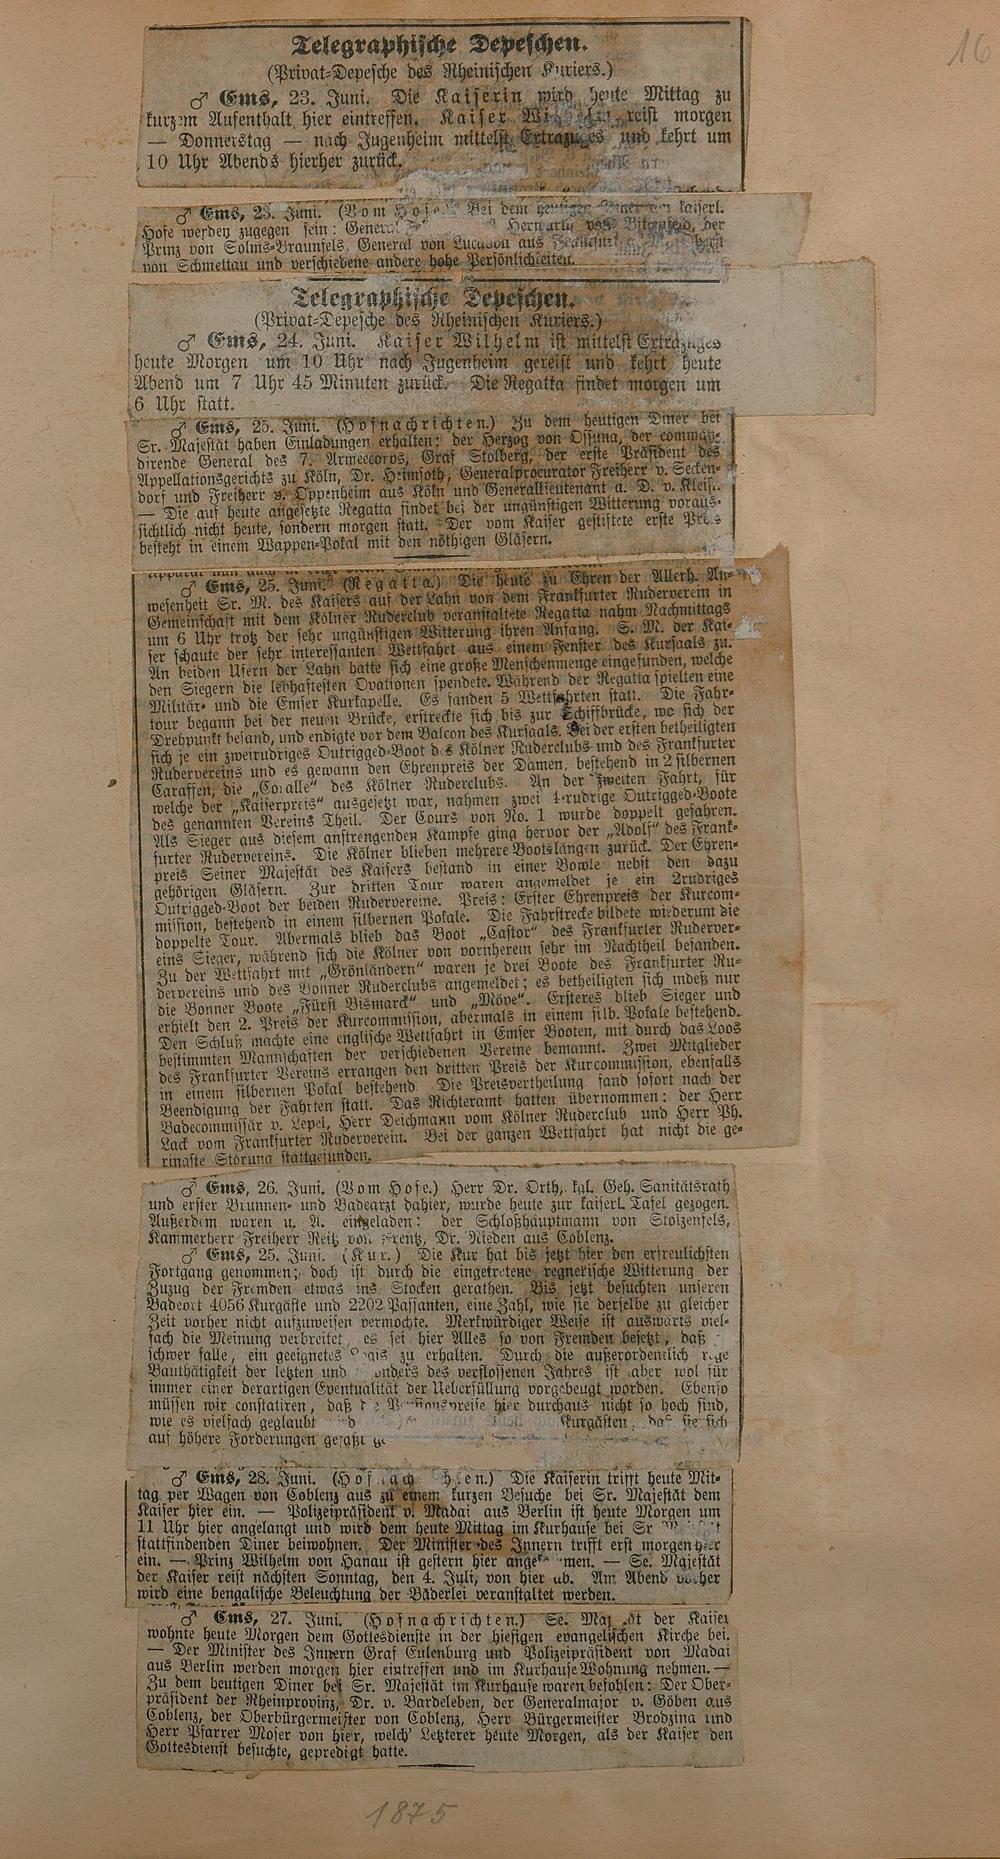 16
Telegraphische Depeschen.
(Privat-Depesche des Rheinischen Kuriers.)
♂ Ems, 23. Juni. Die Kaiserin wird heute Mittag zu
kurzem Aufenthalt hier eintreffen. Kaiser Wilhelm reist morgen
— Donnerstag — nach Jugenheim mittelst Extrazuges und kehrt um
10 Uhr Abends hierher zurück.
♂ Ems, 23. Juni. (Vom Hofe.) Bei dem heutigen Diner am kaiserl.
Hofe werden zugegen sein: General Herwarth von Bittenfeld, der
Prinz von Solms-Braunfels, General von Lucadou aus Frankfurt a.
von Schmettau und verschiedene andere hohe Persönlichkeiten.
Telegraphische Depeschen.
(Privat-Depesche des Rheinischen Kuriers.)
♂ Ems, 24. Juni. Kaiser Wilhelm ist mittelst Extrazuges
heute Morgen um 10 Uhr nach Jugenheim gereist und kehrt heute
Abend um 7 Uhr 45 Minuten zurück. Die Regatta findet morgen um
6 Uhr statt.
♂ Ems, 25. Juni. (Hofnachrichten.) Zu dem heutigen Diner bei
Sr. Majestät haben Einladungen erhalten: der Herzog von Ossuna, der comman-
dirende General des 7. Armeecorps, Graf Stolberg, der erste Präsident des
Appellationsgerichts zu Köln, Dr. Heimsoth, Generalprocurator Freiherr v. Secken-
dorf und Freiherr v. Oppenheim aus Köln und Generallieutenant a. D. v. Kleist.
— Die auf heute angesetzte Regatta findet bei der ungünstigen Witterung voraus-
sichtlich nicht heute, sondern morgen statt. Der vom Kaiser gestiftete erste Preis
besteht in einem Wappen-Pokal mit den nöthigen Gläsern.
♂ Ems, 25. Juni. (Regatta.) Die heute zu Ehren der Allerh. An-
wesenheit Sr. M. des Kaisers auf der Lahn von dem Frankfurter Ruderverein in
Gemeinschaft mit dem Kölner Ruderclub veranstaltete Regatta nahm Nachmittags
um 6 Uhr trotz der sehr ungünstigen Witterung ihren Anfang. S. M. der Kai-
ser schaute der sehr interessanten Wettfahrt aus einem Fenster des Kursaals zu.
An beiden Ufern der Lahn hatte sich eine große Menschenmenge eingefunden, welche
den Siegern die lebhaftesten Ovationen spendete. Während der Regatta spielten eine
Militär- und die Emser Kurkapelle. Es fanden 5 Wettfahrten statt. Die Fahr-
tour begann bei der neuen Brücke, erstreckte sich bis zur Schiffbrücke, wo sich der
Drehpunkt befand, und endigte vor dem Balcon des Kursaals. Bei der ersten betheiligten
sich je ein zweirudriges Outrigged-Boot des Kölner Ruderclubs und des Frankfurter
Rudervereins und es gewann den Ehrenpreis der Damen, bestehend in 2 silbernen
Caraffen, die „Coralle“ des Kölner Ruderclubs. An der zweiten Fahrt, für
welche der „Kaiserpreis“ ausgesetzt war, nahmen zwei 4-rudrige Outrigged-Boote
des genannten Vereins Theil. Der Cours von No. 1 wurde doppelt gefahren.
Als Sieger aus diesem anstrengenden Kampfe ging hervor der „Adolf“ des Frank-
furter Rudervereins. Die Kölner blieben mehrere Bootslängen zurück. Der Ehren-
preis Seiner Majestät des Kaisers bestand in einer Bowle nebst den dazu
gehörigen Gläsern. Zur dritten Tour waren angemeldet je ein 2rudriges
Outrigged-Boot der beiden Rudervereine. Preis: Erster Ehrenpreis der Kurcom-
mission, bestehend in einem silbernen Pokale. Die Fahrstrecke bildete wiederum die
doppelte Tour. Abermals blieb das Boot „Castor“ des Frankfurter Ruderver-
eins Sieger, während sich die Kölner von vornherein sehr im Nachtheil befanden.
Zu der Wettfahrt mit „Grönländern“ waren je drei Boote des Frankfurter Ru-
dervereins und des Bonner Ruderclubs angemeldet; es betheiligten sich indeß nur
die Bonner Boote „Fürst Bismarck“ und „Möve“. Ersteres blieb Sieger und
erhielt den 2. Preis der Kurcommission, abermals in einem silb. Pokale bestehend.
Den Schluß machte eine englische Wettfahrt in Emser Booten, mit durch das Loos
bestimmten Mannschaften der verschiedenen Vereine bemannt. Zwei Mitglieder
des Frankfurter Vereins errangen den dritten Preis der Kurcommission, ebenfalls
in einem silbernen Pokal bestehend. Die Preisvertheilung fand sofort nach der
Beendigung der Fahrten statt. Das Richteramt hatten übernommen: der Herr
Badecommissär v. Lepel, Herr Deichmann vom Kölner Ruderclub und Herr Ph.
Lack vom Frankfurter Ruderverein. Bei der ganzen Wettfahrt hat nicht die ge-
ringste Störung stattgefunden.
♂ Ems, 26. Juni. (Vom Hofe.) Herr Dr. Orth, kgl. Geh. Sanitätsrath
und erster Brunnen- und Badearzt dahier, wurde heute zur kaiserl. Tafel gezogen.
Außerdem waren u. A. eingeladen: der Schloßhauptmann von Stolzenfels,
Kammerherr Freiherr Reitz von Frentz, Dr. Nieden aus Coblenz.
♂ Ems, 25. Juni. (Kur.) Die Kur hat bis jetzt hier den erfreulichsten
Fortgang genommen; doch ist durch die eingetretene regnerische Witterung der
Zuzug der Fremden etwas ins Stocken gerathen. Bis jetzt besuchten unseren
Badeort 4056 Kurgäste und 2202 Passanten, eine Zahl, wie sie derselbe zu gleicher
Zeit vorher nicht aufzuweisen vermochte. Merkwürdiger Weise ist auswärts viel-
fach die Meinung verbreitet, es sei hier Alles so von Fremden besetzt, daß
schwer falle, ein geeignetes Logis zu erhalten. Durch die außerordentlich rege
Bauthätigkeit der letzten und besonders des verflossenen Jahres ist aber wol für
immer einer derartigen Eventualität der Ueberfüllung vorgebeugt worden. Ebenso
müssen wir constatiren, daß die Pensionspreise hier durchaus nicht so hoch sind,
wie es vielfach geglaubt Kurgästen, daß sie sich
auf höhere Forderungen gefaßt
♂ Ems, 28. Juni. (Hofnachrichten.) Die Kaiserin trifft heute Mit-
tag per Wagen von Coblenz aus zu einem kurzen Besuche bei Sr. Majestät dem
Kaiser hier ein. — Polizeipräsident v. Madai aus Berlin ist heute Morgen um
11 Uhr hier angelangt und wird dem heute Mittag im Kurhause bei Sr. Majestät
stattfindenden Diner beiwohnen. Der Minister des Innern trifft erst morgen hier
ein. — Prinz Wilhelm von Hanau ist gestern hier angekommen. — Se. Majestät
der Kaiser reist nächsten Sonntag, den 4. Juli, von hier ab. Am Abend vorher
wird eine bengalische Beleuchtung der Bäderlei veranstaltet werden.
♂ Ems, 27. Juni. (Hofnachrichten.) Se. Majestät der Kaiser
wohnte heute Morgen dem Gottesdienste in der hiesigen evangelischen Kirche bei.
— Der Minister des Innern Graf Eulenburg und Polizeipräsident von Madai
aus Berlin werden morgen hier eintreffen und im Kurhause Wohnung nehmen. —
Zu dem heutigen Diner bei Sr. Majestät im Kurhause waren befohlen: Der Ober-
präsident der Rheinprovinz, Dr. v. Bardeleben, der Generalmajor v. Göben aus
Coblenz, der Oberbürgermeister von Coblenz, Herr Bürgermeister Brodzina und
Herr Pfarrer Moser von hier, welch' Letzterer heute Morgen, als der Kaiser den
Gottesdienst besuchte, gepredigt hatte.
1875